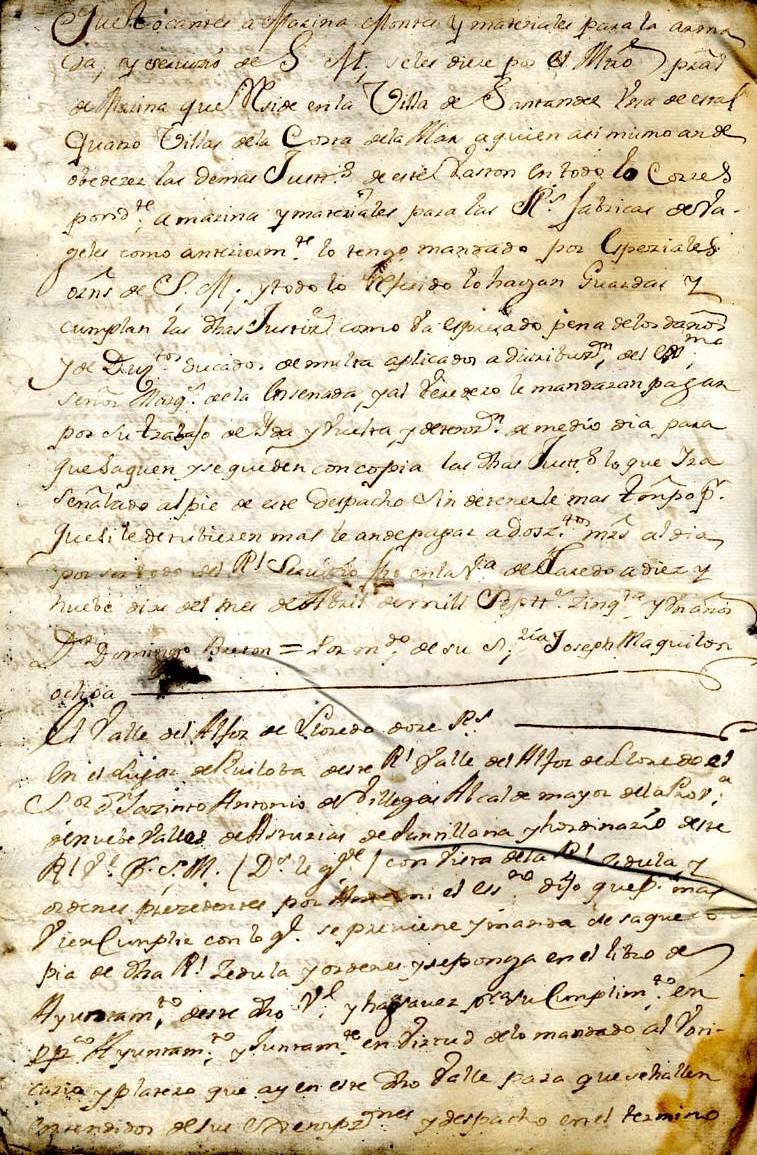 Que tocantes a Marina Montes y materiales para la arma
da, y servizio de S. M, seles diere por el Mro prăl
de Marina que Reside en la Villa de Santander Una de estas
Quatro Villas de la Costa de la Mar, a quien asi mismo an de
obedezer las demas Justt.s de este Baston en todo lo Corres
pond.te a marina y materiales para las R.s fabricas de Va-
geles como anteriorm.te lo tengo mandado por Espeziales
orns de S. M; y todo lo Referido lo hagan Guardar y
cumplan las dhas Justiz.s como ba espresado pena de los daños
y de Duz.tos ducados de multa aplicados a distribuz.n del Ex.mo
señor Marq.s de la Ensenada, y al Veredero le mandaran pagar
por su trabajo de Yda y buelta, y detenz.n de medio dia para
que saquen y se queden con copia las dhas Justt.s lo que Yra
señalado al pie de este Despacho sin detenerle mas tmpo p.r
que si le detubieren mas le an de pagar a Dosz.tos mrs al dia
por ser todo del R.l Servizio fho en la V.a de Laredo a diez y
huebe dias del mes de Abril de mill Settz.s Zinq.ta y Un años
D.n Domingo Bureon = Por m.do de su S.ria Joseph Maquilon
ochoa
El Valle del Alfoz de Lloredo doze R.s
En el Lugar de Ruiloba de este R.l Valle del Alfoz de Lloredo el
S.or D.n Jazinto Antonio de Villegas Alcalde mayor de la Prov.a
de nuebe Valles de Asturias de Santillana y hordinario de este
R.l V.e P. S. M. (D.s le g.de) con Vista de la R.l Zedula y
ordenes prezedentes por Ante mi el ess.no dijo que p.a mas
Vien Cumplir con lo q.e se previene y manda de saque co
pia de dha R.l Zedula y ordenes y se ponga en el libro de
Ayuntam.to de este dho V.e y haga ver para su Cumplim.to en
Ayuntam.to y Juntam.te en Virtud de lo mandado al Voti-
cario y platero que ay en este dho Valle para que se hallen
entendidos de sus y despacho en el termino